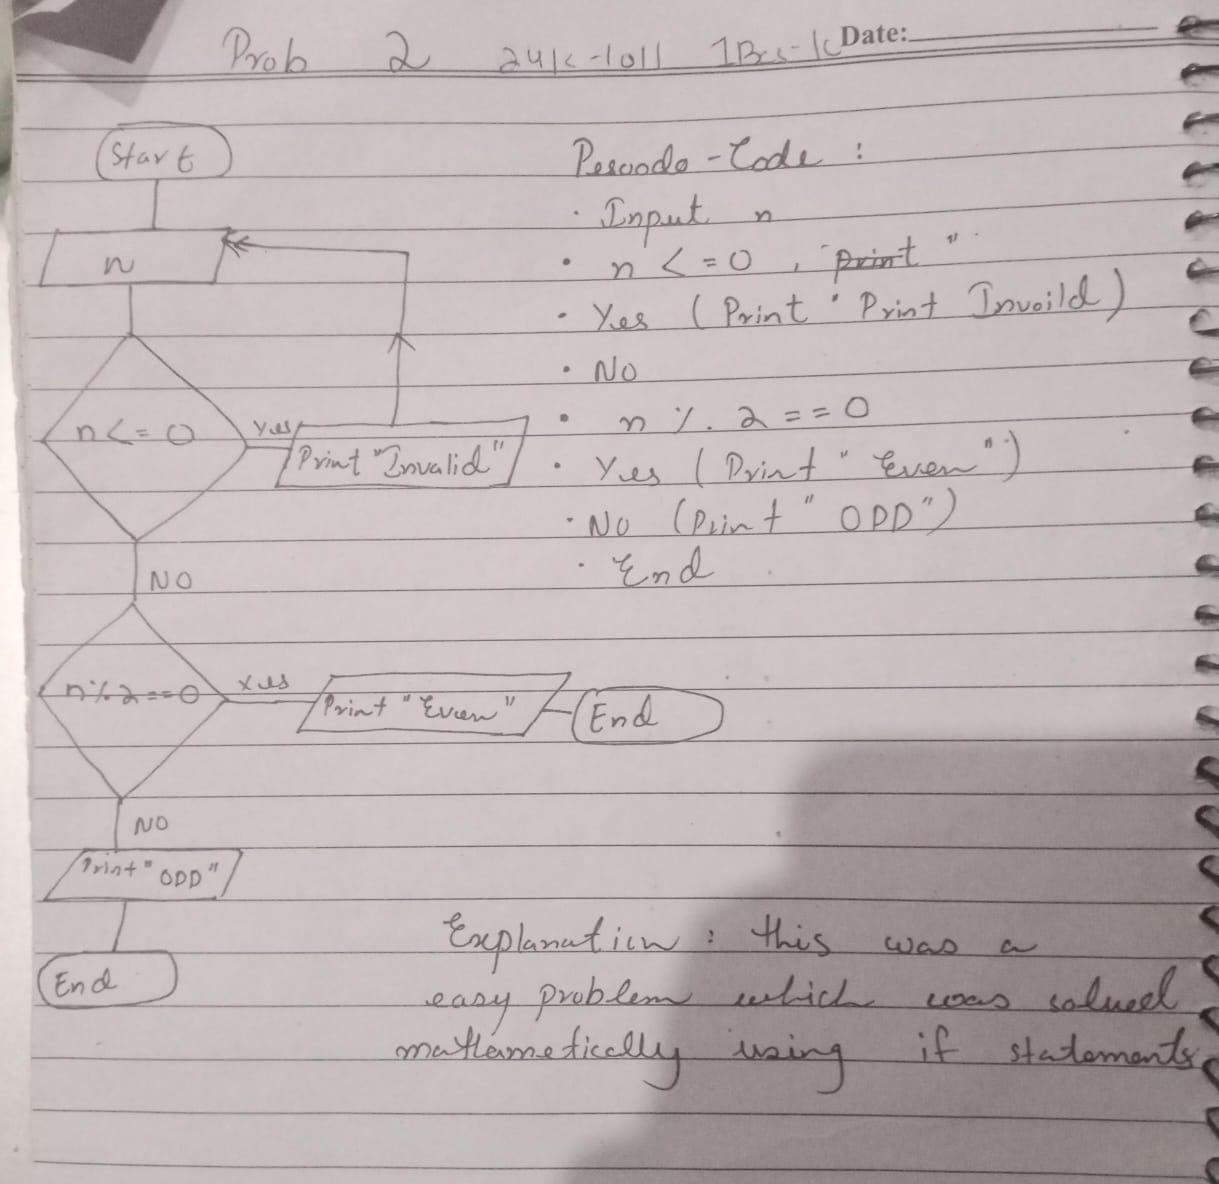 Prob 2 24K-1011 1Bcs-1C Date:
Start
n
n <= 0
Yes
Print "Invalid"
NO
n % 2 == 0
Yes
Print "Even"
End
NO
Print "ODD"
End
Pesuodo-Code :
· Input n
· n <= 0 , "print"
· Yes ( Print " Print Invaild )
· No
· n % 2 == 0
· Yes ( Print " Even " )
· No ( Print " ODD" )
· End
Explanation : this was a
easy problem which was solved
mathametically using if statements